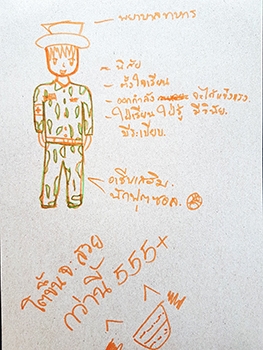 พยาบาลทหาร
- นิสัย
- ตั้งใจเรียน
- ออกกำลัง จะได้แข็งแรง.
- ใฝ่เรียน ใฝ่รู้ มีวินัย.
มีระเบียบ.
อาชีพเสริม.
นักฟุตซอล.
โตขึ้น จ. สวย
กว่านี้ 555+